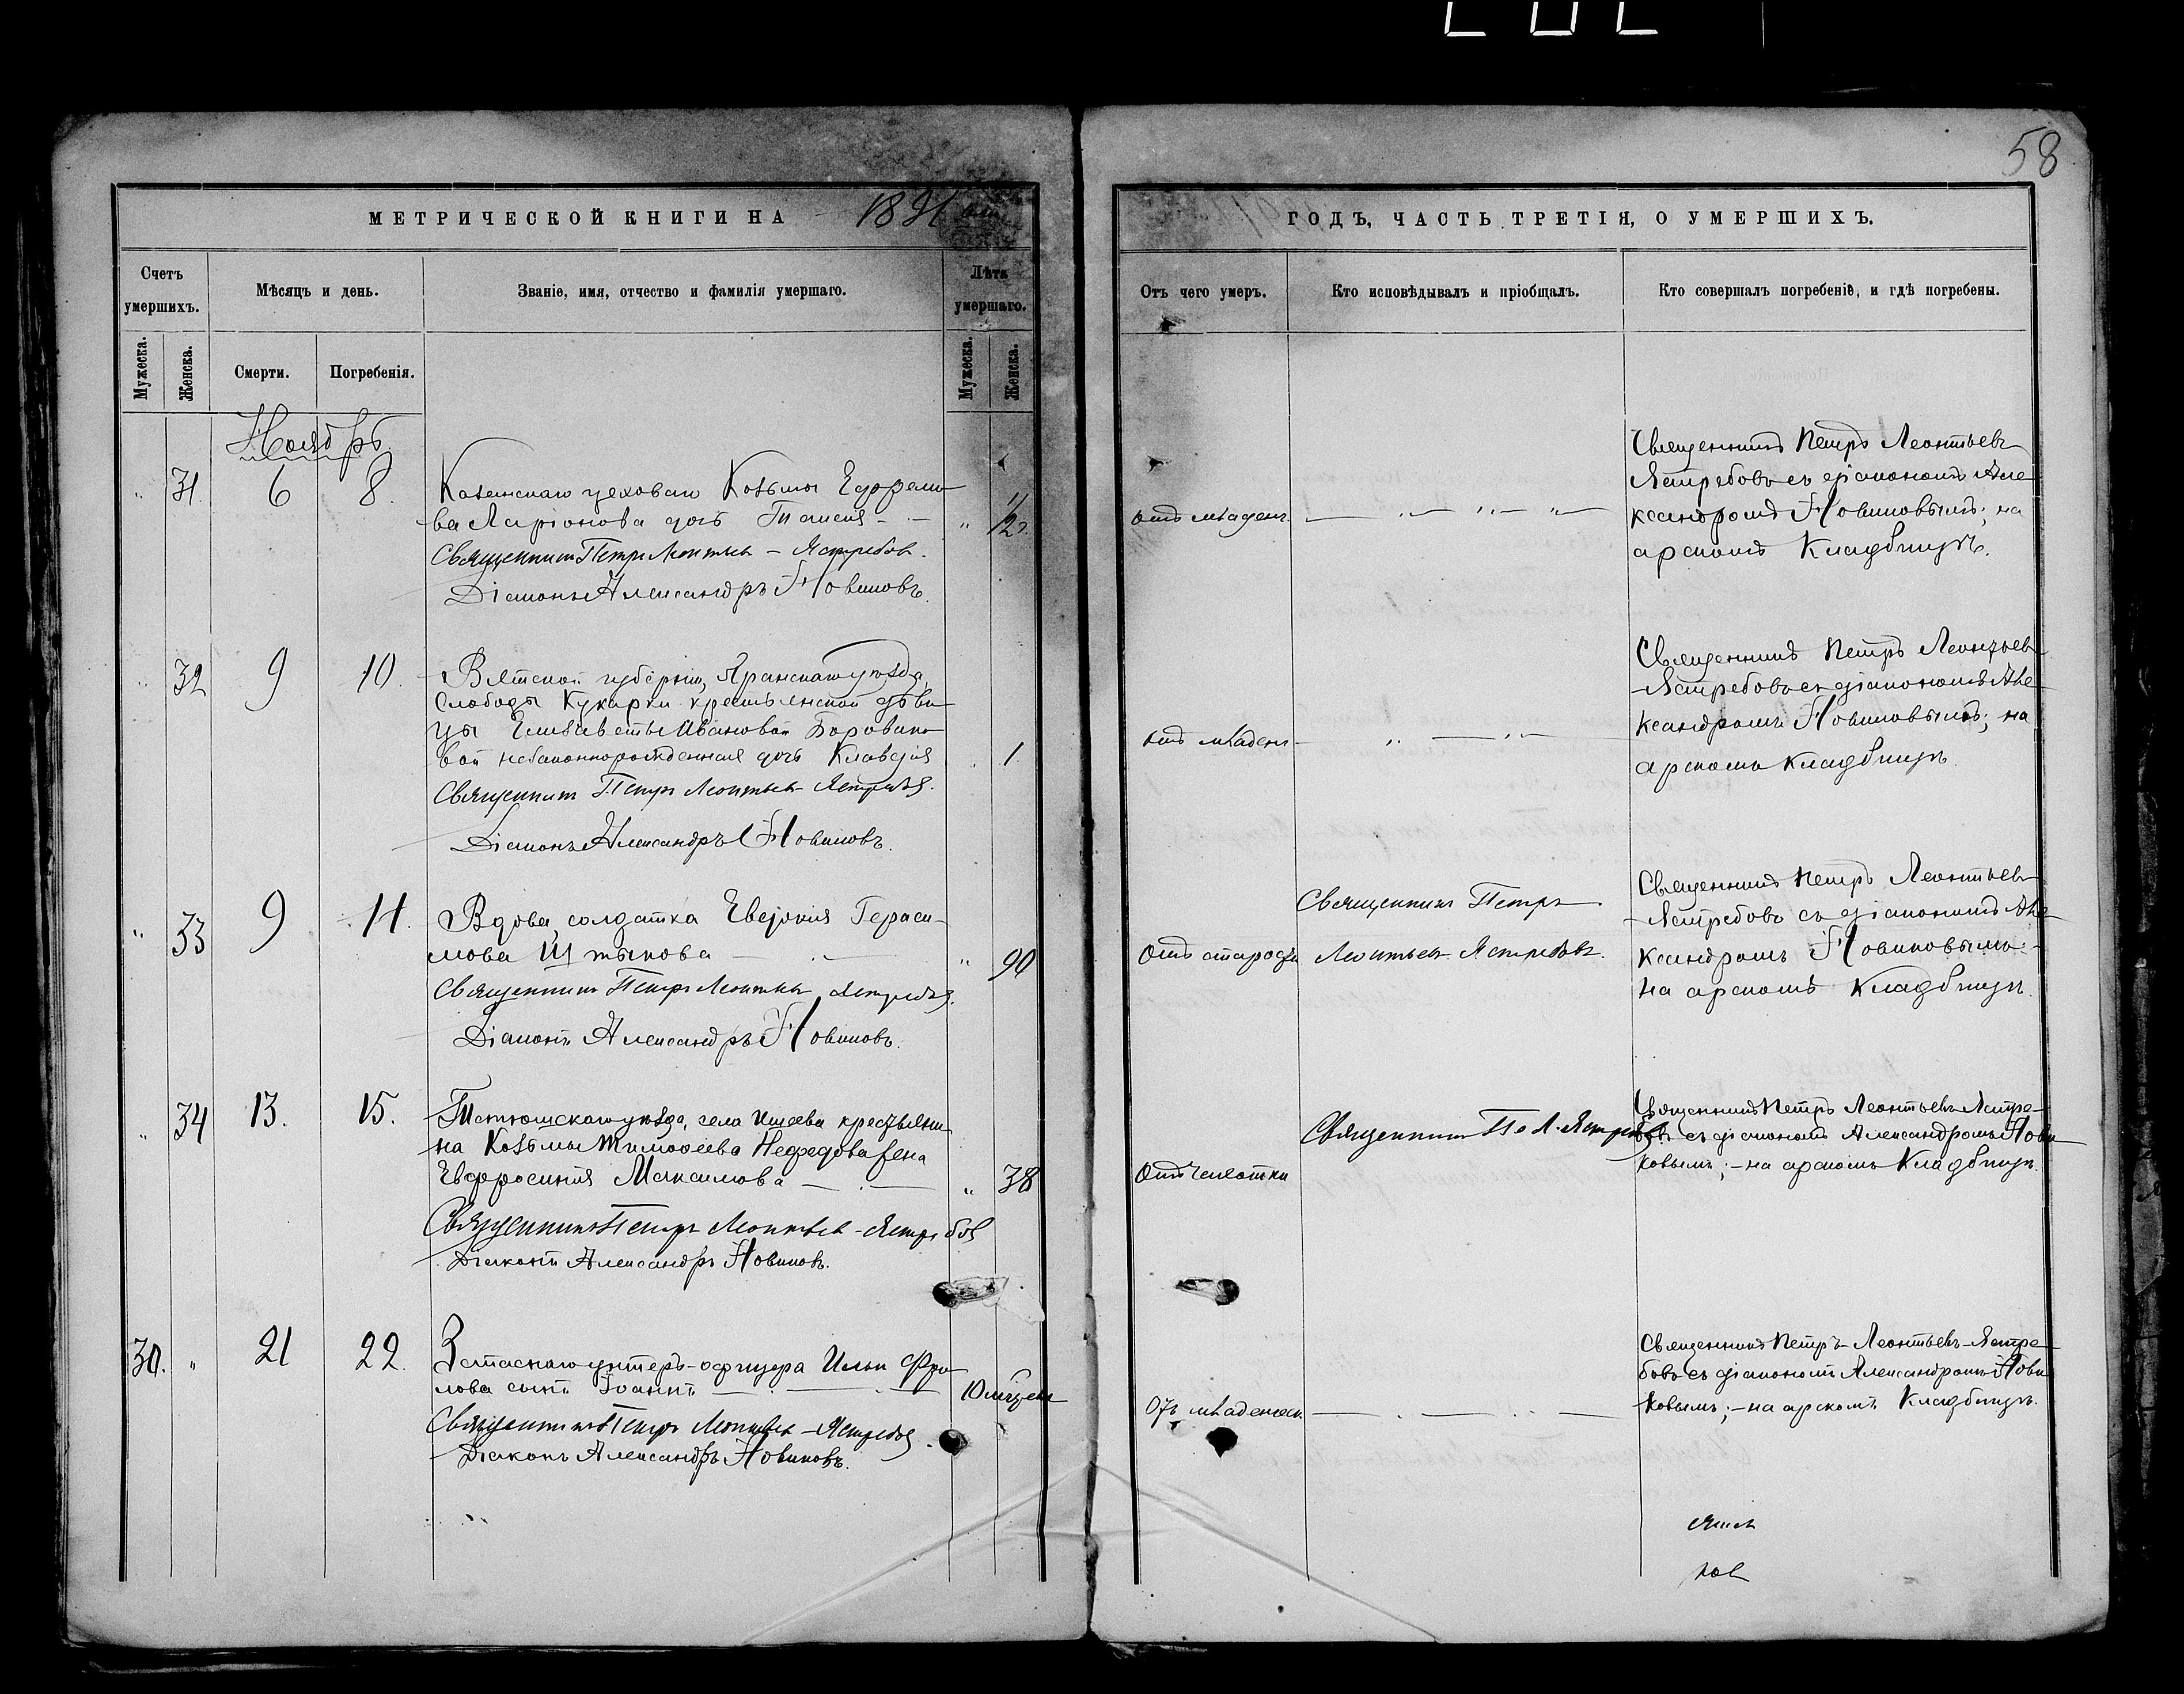 58
МЕТРИЧЕСКОЙ КНИГИ НА 1891
ГОДЪ, ЧАСТЬ ТРЕТІЯ, О УМЕРШИХЪ.
Счетъ умершихъ.
Мѣсяцъ и день.
Званіе, имя, отчество и фамилія умершаго.
Лѣта умершаго.
Отъ чего умеръ.
Кто исповѣдывалъ и пріобщалъ.
Кто совершалъ погребеніе, и гдѣ погребены.
Мужеска.
Женска.
Смерти.
Погребенія.
Мужеска.
Женска.
Ноябрь
" 31. 6 8.
Казанскаго цеховаго Козьмы Ефремо-
ва Ларіонова дочь Таисія
" 1/2
Священникъ Петръ Леонтьев - Ястребов.
Діаконъ Александръ Новиковъ.
отъ младенч.
Священникъ Петръ Леонтьевъ
Ястребовъ съ діакономъ Але
ксандромъ Новиковымъ; на
арскомъ Кладбищѣ.
" 32 9 10.
Вятской губерніи, Яранскаго уѣзда,
Слободы Кукарки крестьянской дѣви
цы Елизаветы Ивановой Боровико
вой незаконнорожденная дочь Клавдія
1.
Священникъ Петръ Леонтьев Ястребов.
Діаконъ Александръ Новиковъ.
отъ младенч
Священникъ Петръ Леонтьев-
-Ястребовъ съ діакономъ Але
ксандромъ Новиковымъ; на
арскомъ кладбищѣ.
" 33 9 11.
Вдова, солдатка Евдокія Гераси-
мова Штыкова
" 90
Священникъ Петръ Леонтьев Ястребов.
Діаконъ Александръ Новиковъ.
Отъ старости
Священникъ Петръ
Леонтьев Ястребовъ.
Священникъ Петръ Леонтьев-
-Ястребовъ съ діакономъ Але
ксандромъ Новиковымъ:-
на арскомъ Кладбищѣ.
" 34 13. 15.
Тетюшскаго уѣзда, села крестьяни-
на Козьмы Тимоѳеева Нефедова жена
Евфросинія Максимова
" 38
Священникъ Петръ Леонтьев - Ястребов
Діаконъ Александръ Новиковъ.
Отъ чахотки
Священникъ П. Л. Ястребов.
Священникъ Петръ Леонтьевъ Ястре-
бовъ съ діакономъ Александромъ Нови
ковымъ; - на арскомъ Кладбищѣ.
30. " 21 22.
Запаснаго унтеръ-офицера Ильи Фро
лова сынъ Іоаннъ
Священникъ Петръ Леонтьев - Ястребов.
Діаконъ Александръ Новиковъ.
Отъ младенчес.
Священникъ Петръ Леонтьевъ-Ястре-
бовъ съ діакономъ Александромъ Нови
ковымъ; - на арскомъ Кладбищѣ.